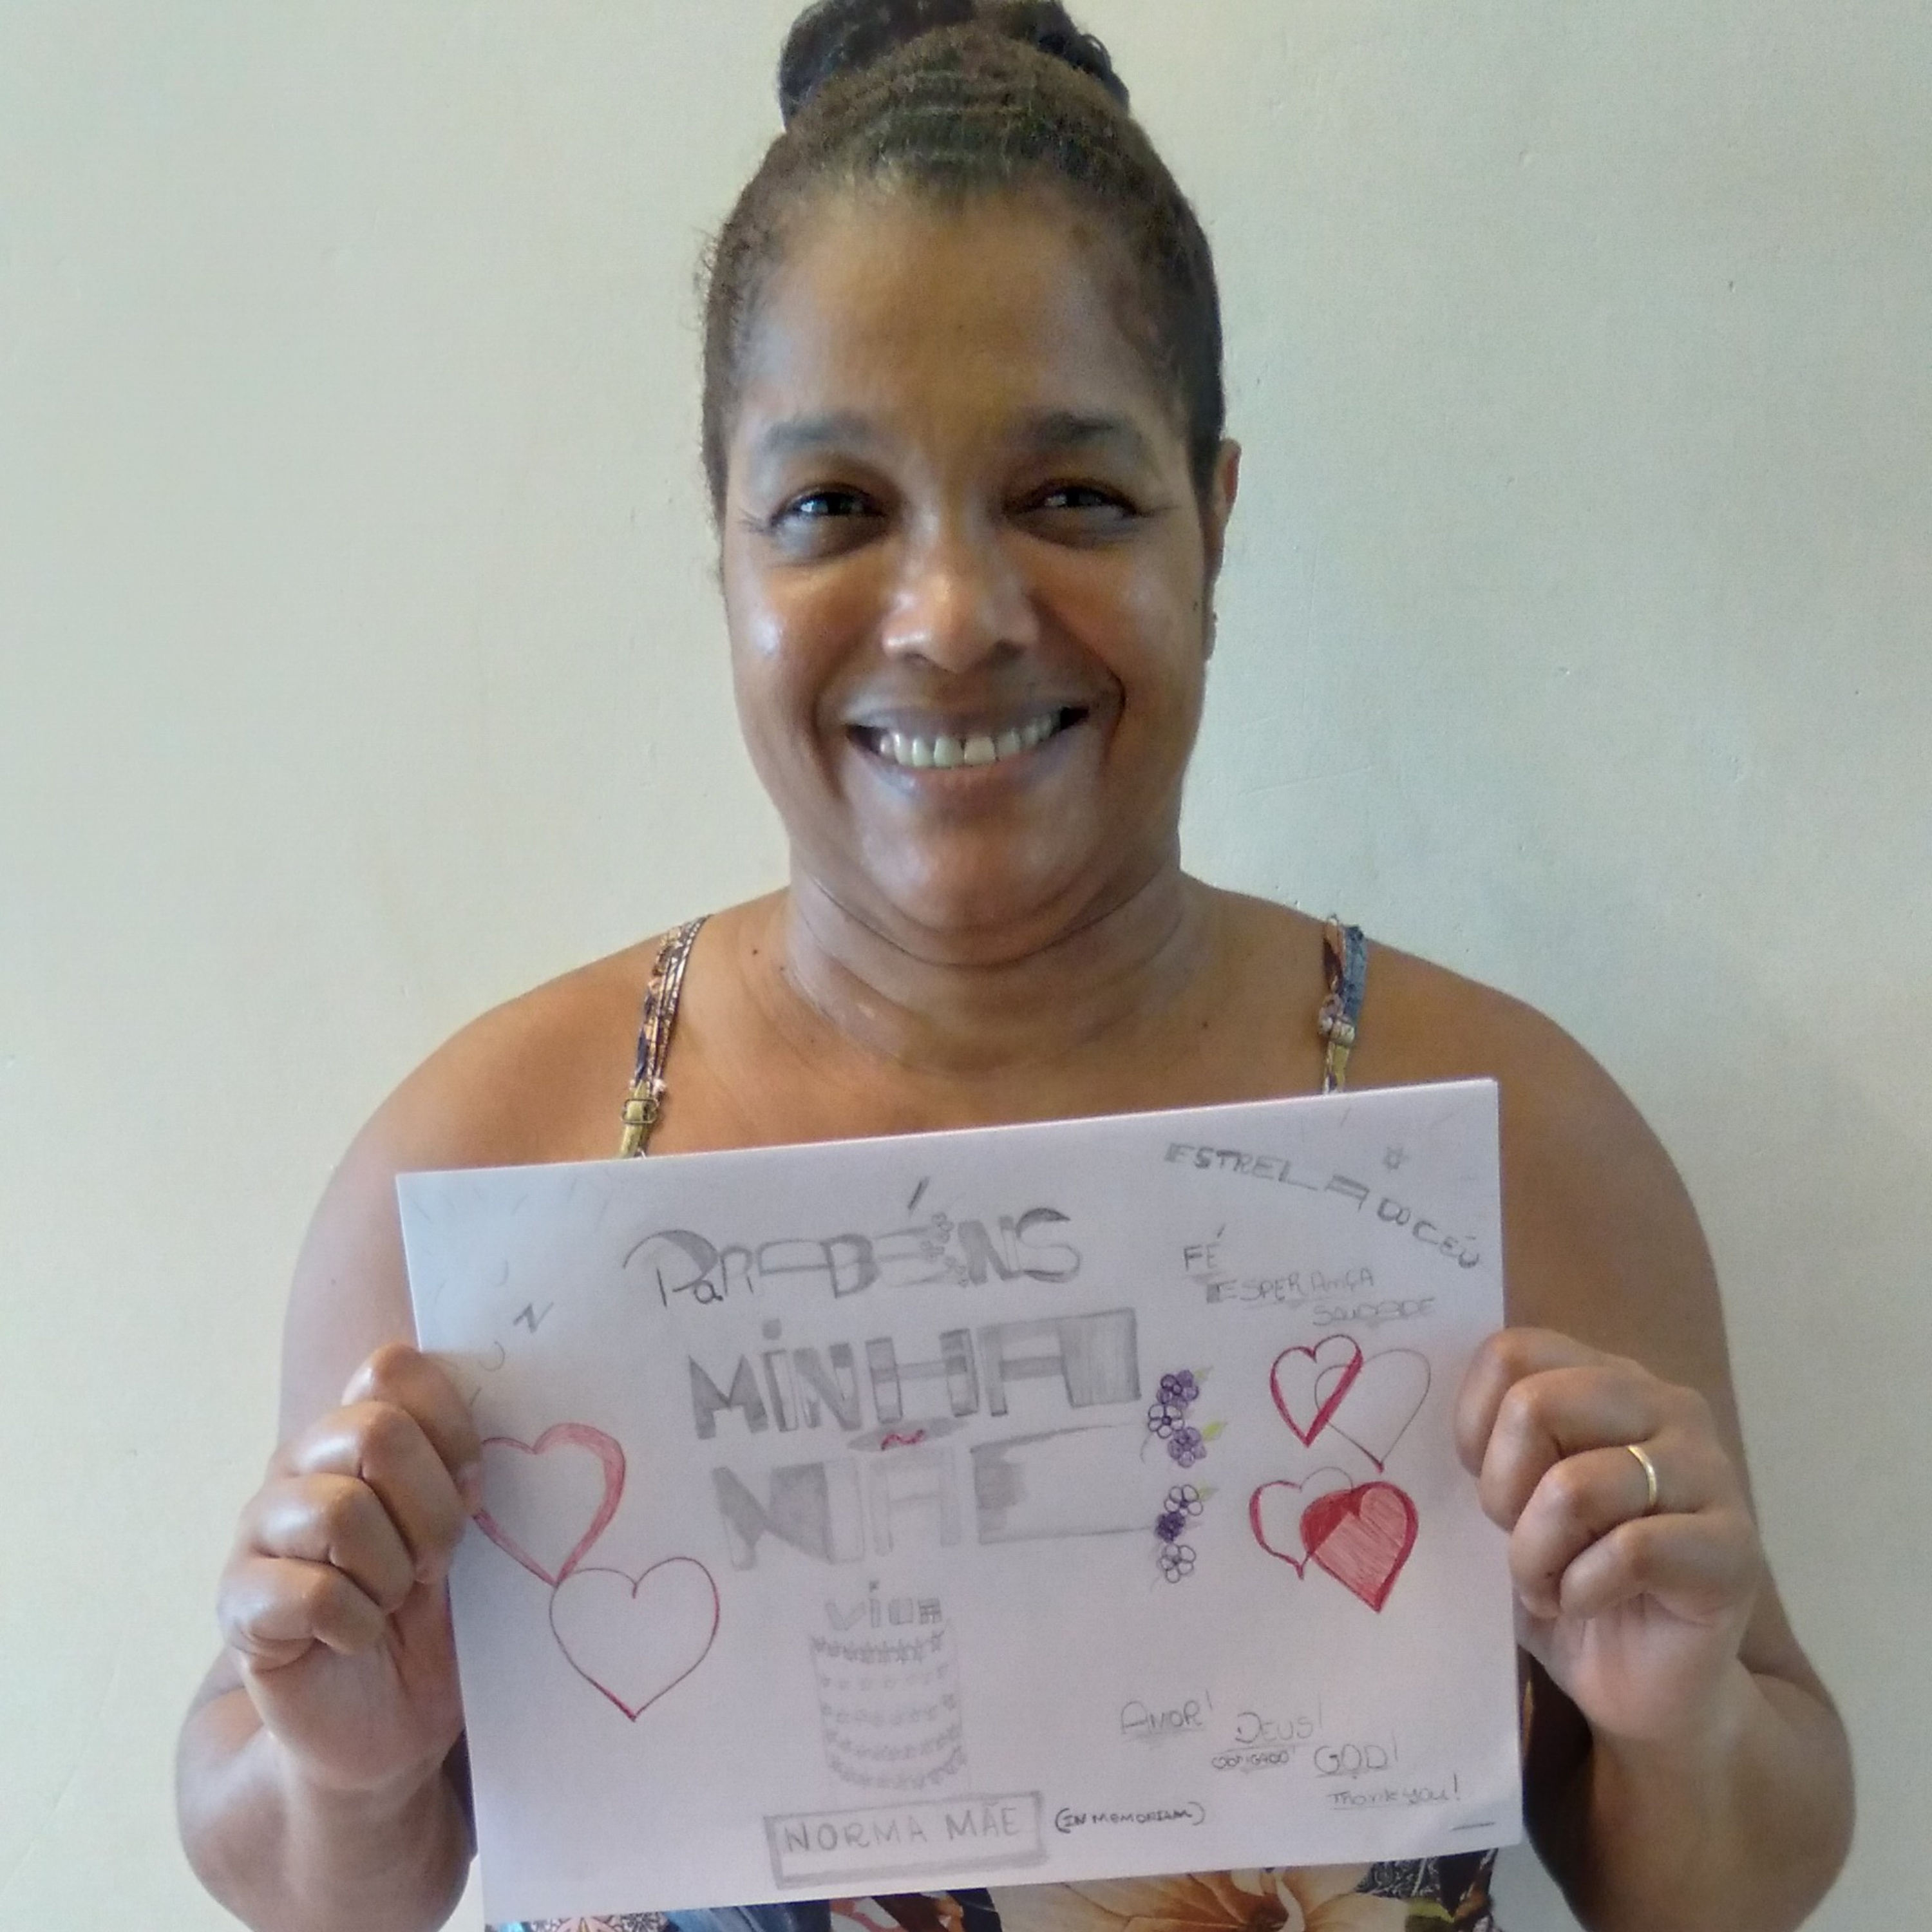 PaRABÉNS
MINHA
MÃE
VIVA
NORMA MÃE (IN MEMORIAM)
ESTRELA DO CÉU
FÉ
ESPERANÇA
SAUDADE
AMOR!
DEUS!
OBRIGADO!
GOD!
Thank you!